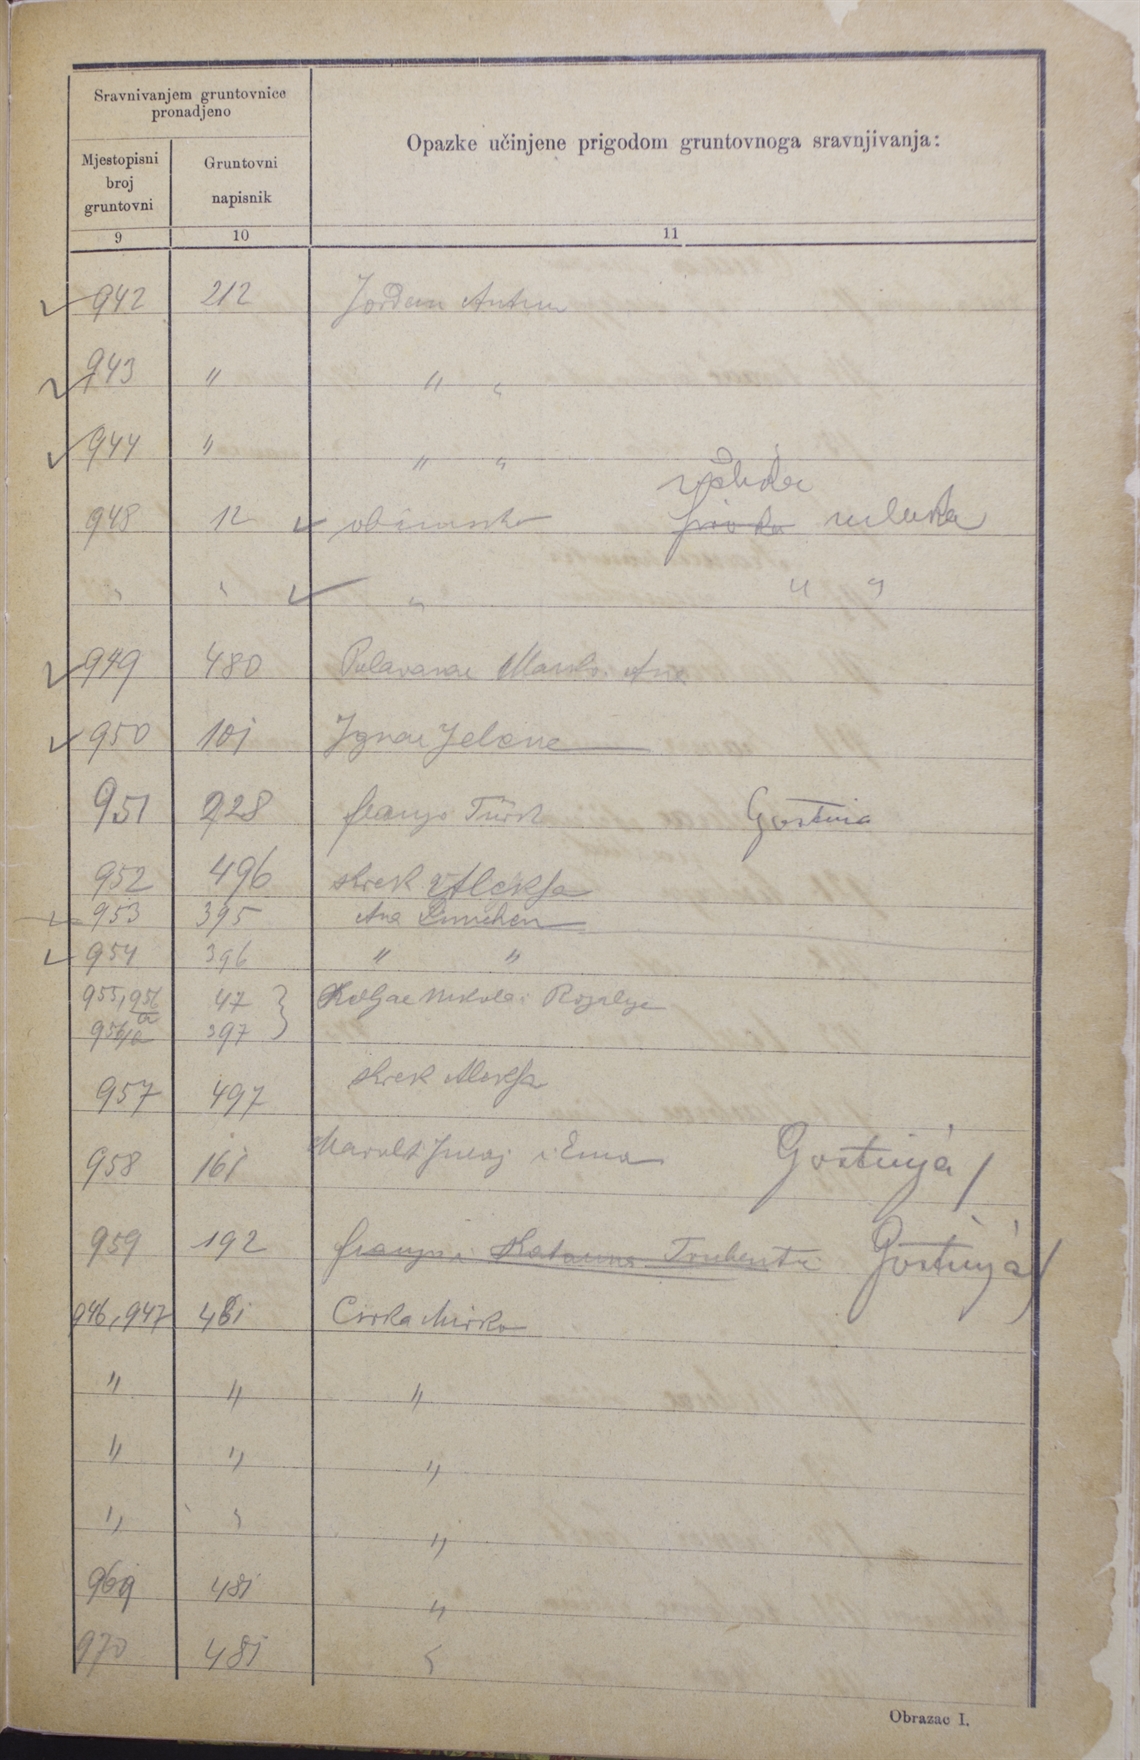 Sravnivanjem gruntovnice
pronadjeno
Opazke učinjene prigodom gruntovnoga sravnjivanja:
Mjestopisni
broj
gruntovni
Gruntovni
napisnik
9 10 11
942 212 Jordan Antun
943 " " "
944 " " "
948 12
" " " " "
949 480 Ana
950 101 Ignac Jelena
951 228 Franjo Türk Gostinja
952 496 Skrek Aleksa
953 395 Ana
954 396 " "
955, 956/a 47 Nikola i Rozalija
956/a 397
957 497 Skrek Aleksa
958 161 Marolt Juraj i Ema Gostinja
959 192 Franjo i Katarina Gostinja
946, 947 481 Mirko
" " "
" " "
" " "
969 481 "
970 481 "
Obrazac I.